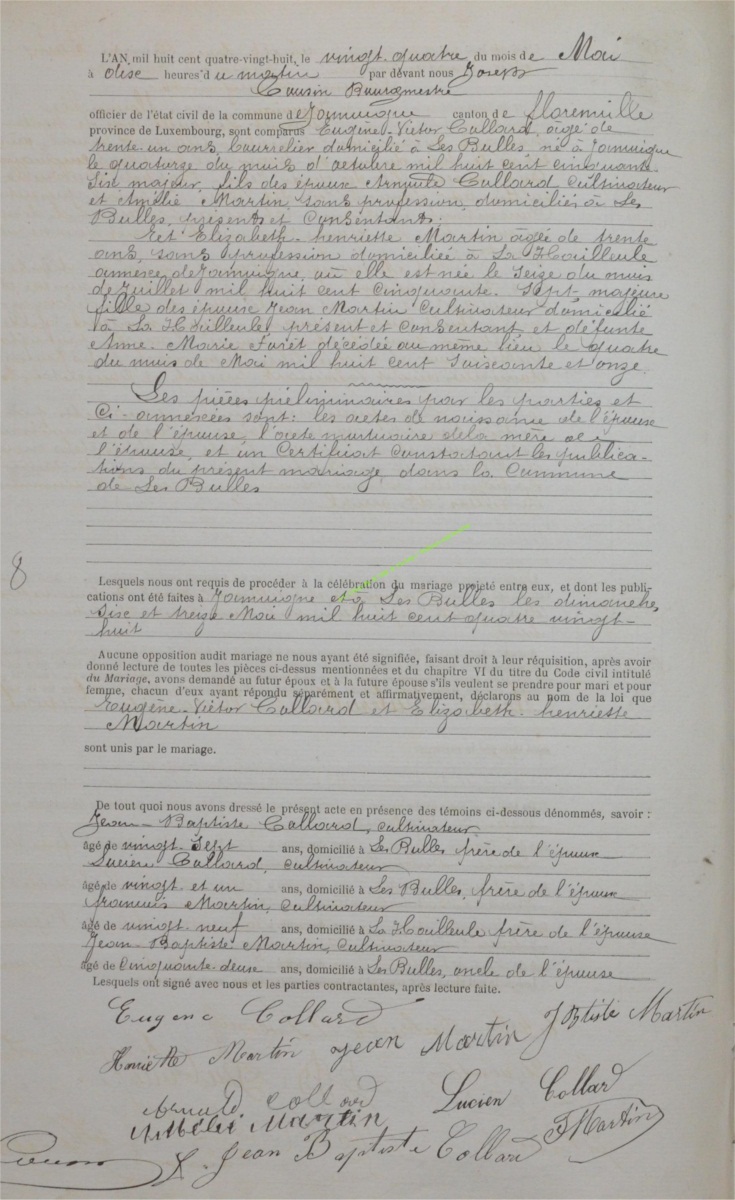 L'AN mil huit cent quatre-vingt-huit, le vingt-quatre du mois de Mai
à dise heures'd u matin par devant nous Joseph
Cousin Bourgmestre
officier de l'état civil de la commune d e Jamoigne canton d e florenville
province de Luxembourg, sont comparus Eugène-Victor Collard, âgé de
trente-un ans, bourrelier domicilié à Les Bulles né à Jamoigne
le quatorze du mois d'octobre mil huit cent cinquante-
Six majeur, fils des épouse Arnould Collard Cultivateur
et Amélie Martin, sans profession, domiciliés à Les
Bulles, présents et Consentants;
Et Elizabeth-henriette Martin âgée de trente
ans, sans profession domiciliée à La Hailleule
annexe de Jamoigne, où elle est née le Seize du mois
de Juillet mil huit cent Cinquante-Sept majeure
fille des épouse Jean Martin Cultivateur domicilié
à La Hailleule présent et Consentant et défunte
Anne-Marie Forêt décédée au même lieu le quatre
du mois de Mai mil huit cent Soixante et onze.
Les pièces préliminaires par les parties et
Ci-annexées sont: les actes de naissance de l'épouse
et de l'épouse, l'acte mortuaire de la mère de
l'épouse, et un Certificat Constatant les publica-
tions du présent mariage, dans la Commune
de Les Bulles
8
Lesquels nous ont requis de procéder à la célébration du mariage projeté entre eux, et dont les publi-
cations ont été faites à Jamoigne et à Les Bulles les dimanche,
Sise et treize Mai mil huit cent quatre vingt-
huit
Aucune opposition audit mariage ne nous ayant été signifiée, faisant droit à leur réquisition, après avoir
donné lecture de toutes les pièces ci-dessus mentionnées et du chapitre VI du titre du Code civil intitulé
du Mariage, avons demandé au futur époux et à la future épouse s'ils veulent se prendre pour mari et pour
femme, chacun d'eux ayant répondu séparément et affirmativement, déclarons au nom de la loi que
Eugène-Victor Collard et Elizabeth-henriette
Martin
sont unis par le mariage.
De tout quoi nous avons dressé le présent acte en présence des témoins ci-dessous dénommés, savoir :
Jean-Baptiste Collard, cultivateur
âgé de vingt-Sept ans, domicilié à Les Bulles frère de l'épouse
Lucien Collard, cultivateur
âgé de vingt et un ans, domicilié à Les Bulles, frère de l'épouse
françois Martin, Cultivateur
âgé de vingt-neuf ans, domicilié à La Hailleule frère de l'épouse
Jean-Baptiste Martin, Cultivateur
âgé de Cinquante-deuse ans, domicilié à Les Bulles, oncle de l'épouse
Lesquels ont signé avec nous et les parties contractantes, après lecture faite.
Eugene Collard
Henriette Martin Jean Martin J Btiste Martin
Arnould Collard Lucien Collard
Amélie Martin FMartin
Cousin Jean Baptiste Collard